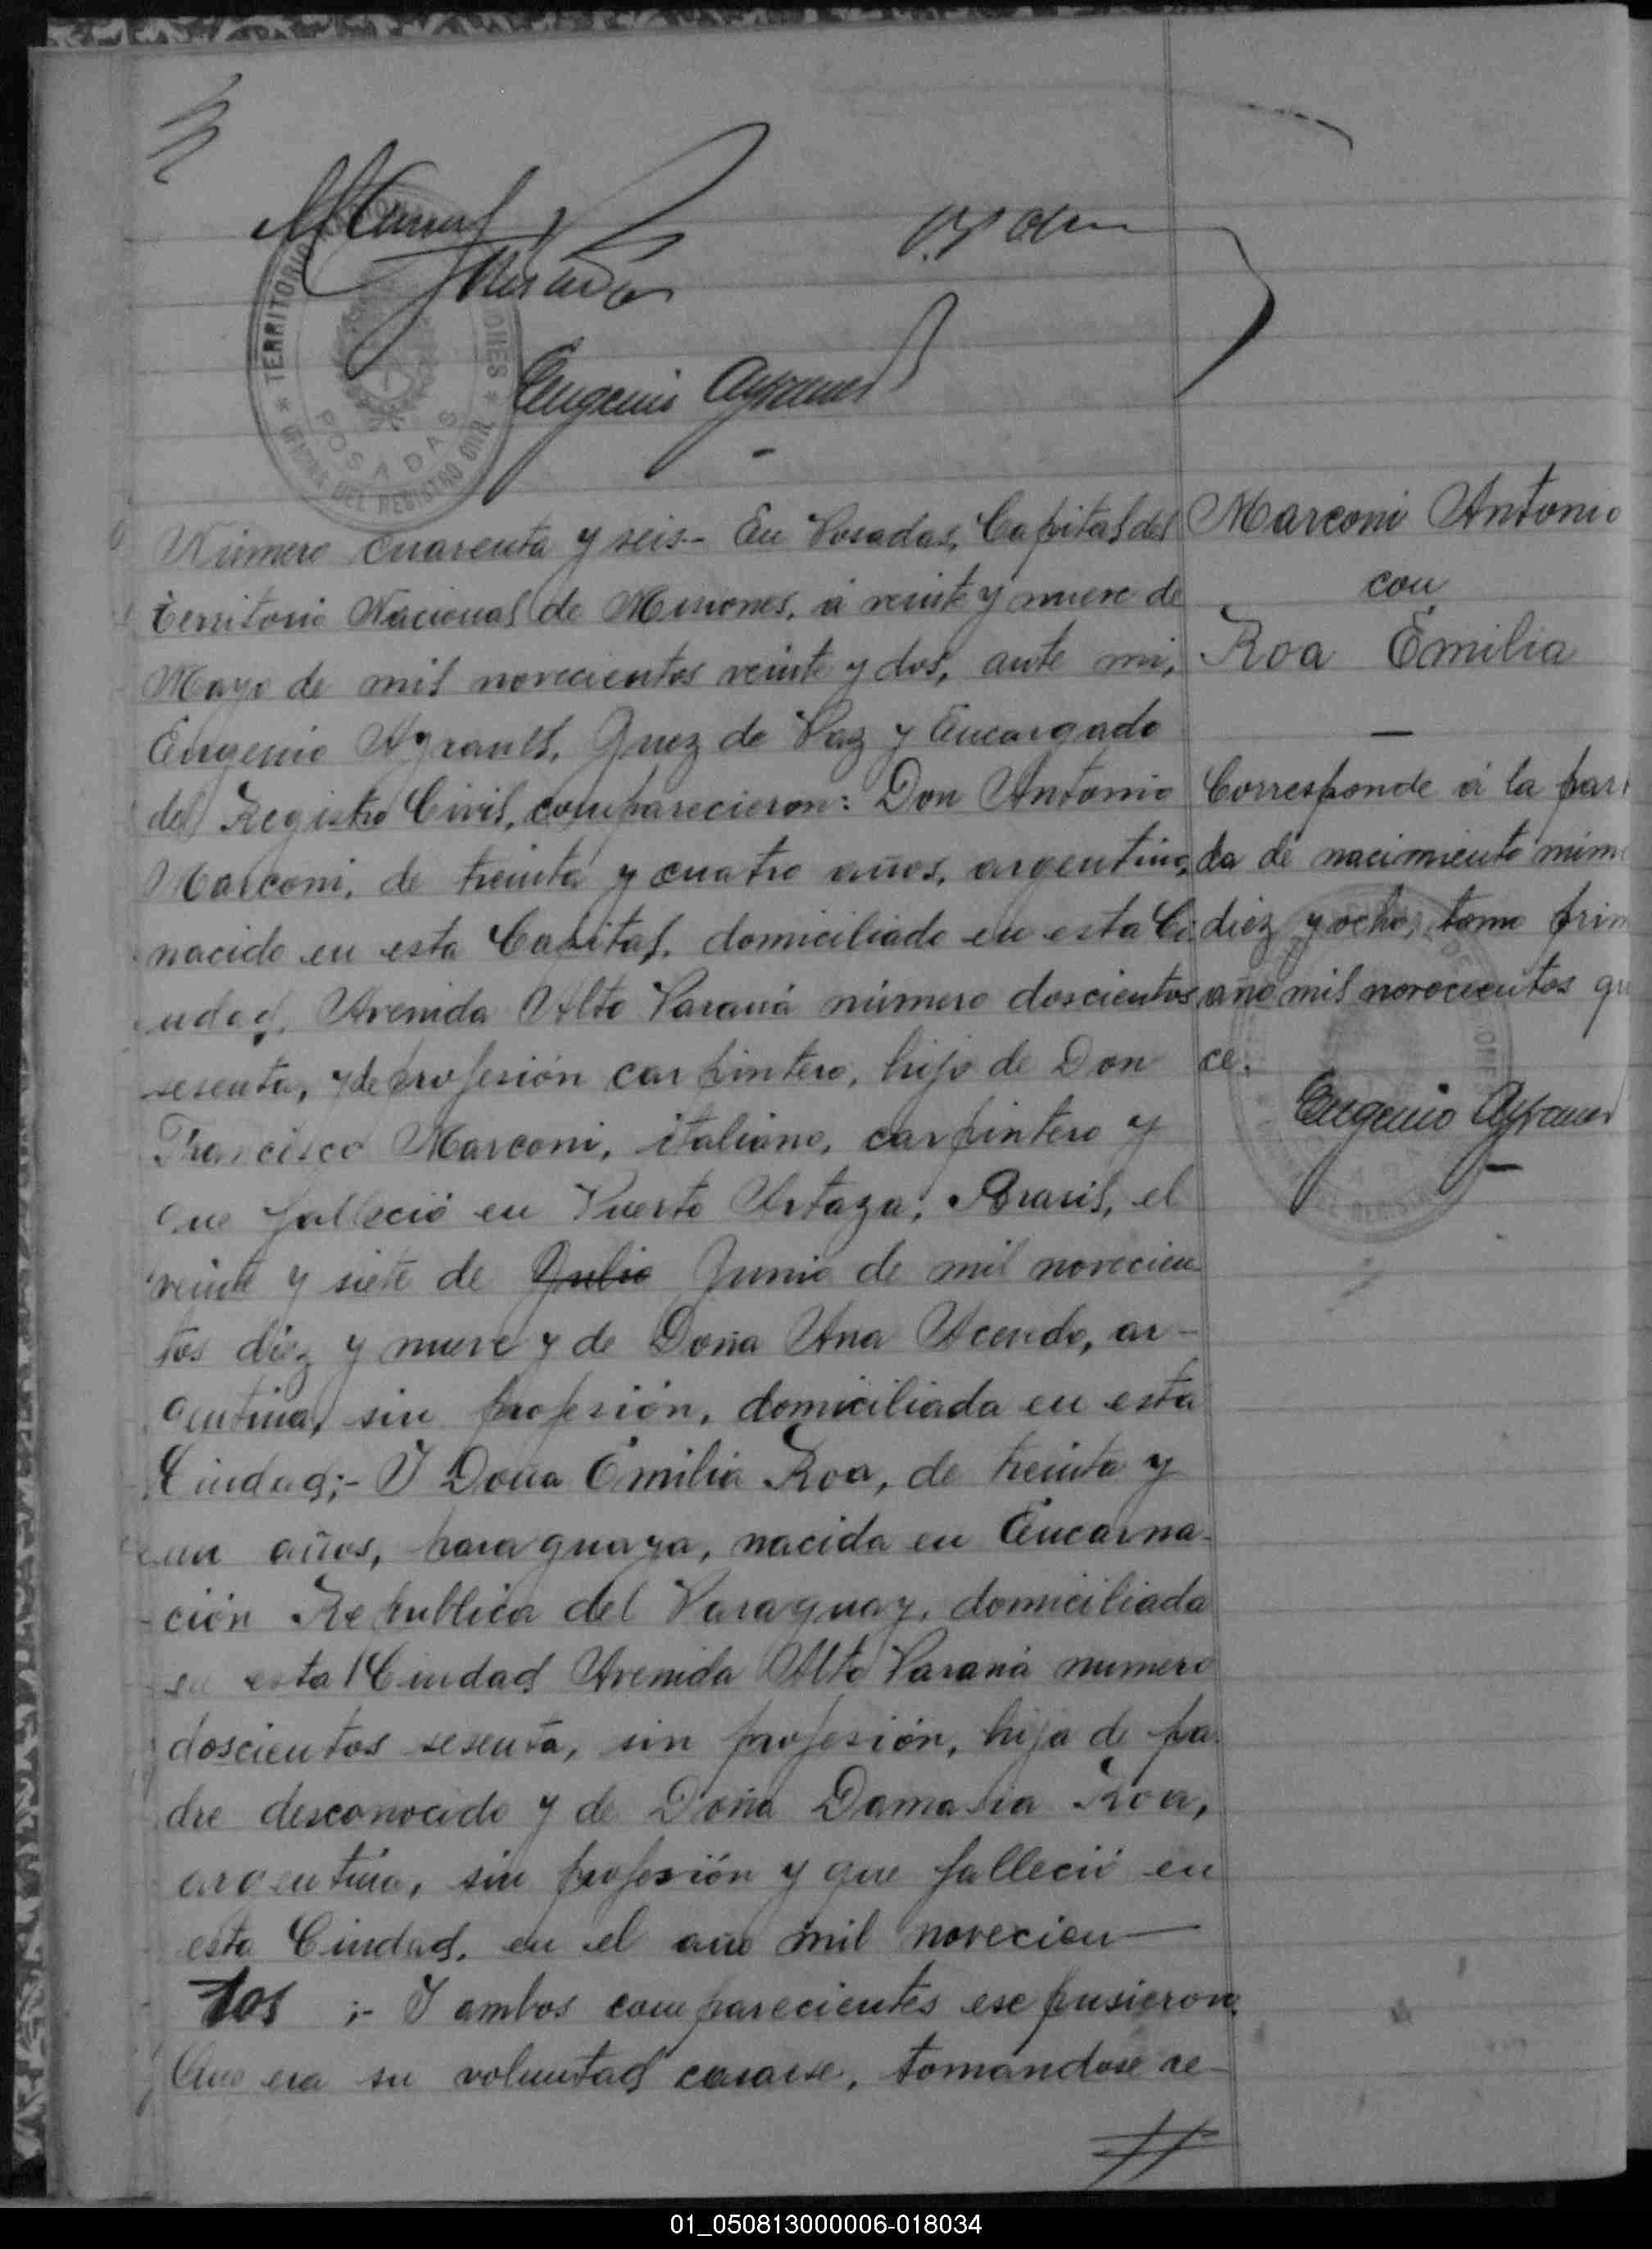 TERRITORIO
POSADAS
OFICINA DEL REGISTRO CIVIL
Eugenio Ayrault
Número cuarenta y seis.- En Posadas, Capital del
territorio Nacional de Misiones, á veinte y nueve de
Mayo de mil novecientos veinte y dos, ante mi,
Eugenio Ayrault, Juez de Paz y Encargado
del Registro Civil, comparecieron: Don Antonio
Marconi, de treinta y cuatro años, argentino,
nacido en esta Capital, domiciliado en esta Ci
udad, Avenida Alto Paraná número doscientos
sesenta, y de profesión carpintero, hijo de Don
Francisco Marconi, italiano, carpintero y
que falleció en Puerto Artaza, Brasil, el
veinte y siete de Julio Junio de mil novecien-
tos diez y nueve y de Doña Ana Acendo, ar-
gentina, sin profesión, domiciliada en esta
Ciudad;- I Doña Emilia Roa, de treinta y
un años, paraguaya, nacida en Encarna-
ción Republica del Paraguay, domiciliada
en esta Ciudad Avenida Alto Paraná numero
doscientos sesenta, sin profesión, hija de pa-
dre desconocido y de Doña Damasia Roa,
argentina, sin profesión y que falleció en
esta Ciudad, en el año mil novecien—
tos ;- I ambos comparecientes espusieron
Que era su voluntad casarse, tomándose re-
Marconi Antonio
con
Roa Emilia
—
Corresponde á la par
da de nacimiento núm
diez y ocho, tomo prim
año mil novecientos qu
ce.
Eugenio Ayrault
01_050813000006-018034